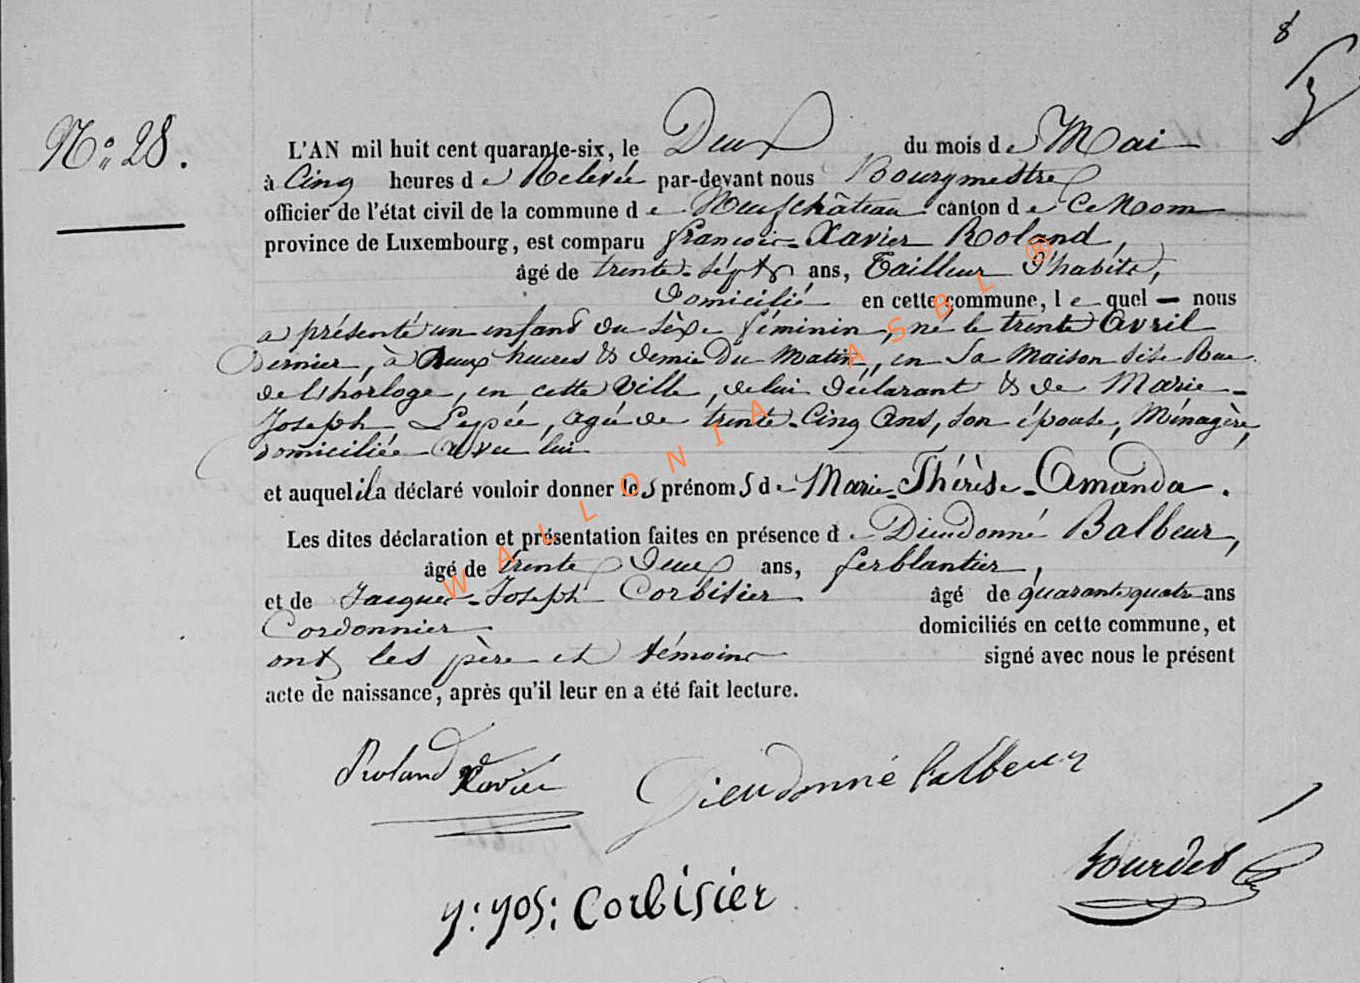 8
N° 28.
L'AN mil huit cent quarante-six, le Deux du mois de Mai
à Cinq heures de Relevée par-devant nous Bourgmestre
officier de l'état civil de la commune de Neufchâteau canton de Ce Nom
province de Luxembourg, est comparu françois-Xavier Roland,
âgé de trente-sept ans, Tailleur d'habits,
Domicilié en cette commune, lequel — nous
a présenté un enfant du sèxe féminin, né le trente Avril
Dernier, à deux heures & demie Du Matin, en Sa Maison Sise Rue
de l'horloge, en cette Ville, de lui Déclarant & de Marie-
Joseph Lepée, agée de trente-Cinq Ans, Son épouse, Ménagère,
domiciliée avec lui
et auquel il a déclaré vouloir donner les prénomS de Marie-Thérèse-Amanda.
Les dites déclaration et présentation faites en présence de Dieudonné Balbeur,
âgé de trente Deux ans, ferblantier,
et de Jacques-Joseph Corbisier âgé de quarante quatre ans
Cordonnier. domiciliés en cette commune, et
ont les père et témoins signé avec nous le présent
acte de naissance, après qu'il leur en a été fait lecture.
Roland Xavier
Dieudonné balbeur
gourdet
y: yos: Corbisier
WALLONIA ASBL ®